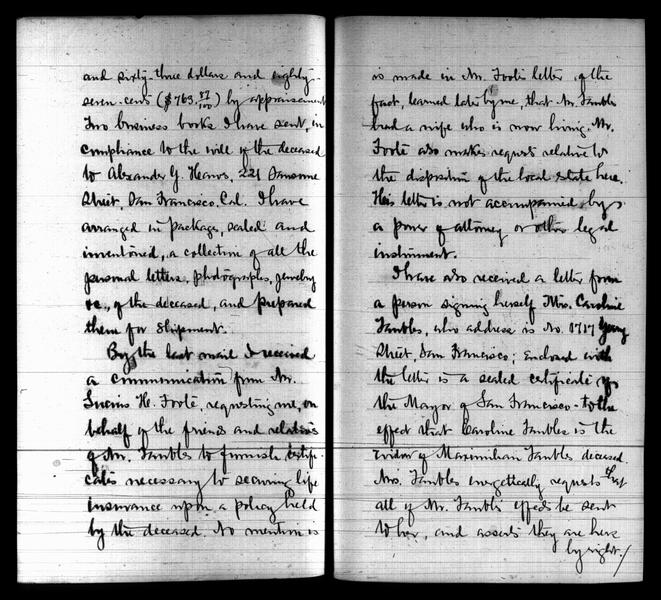 and sixty-three dollars and eighty-
seven cens ($763.87/100) by appraisement
Two business books I have sent, in
compliance to the will of the deceased
to Alexander G. Hawes, 221 Sansome
Street, San Francisco, Cal. I have
arranged in package, sealed and
inventoried, a collection of all the
personal letters, photographs, jewelry
&c., of the deceased, and prepared
them for shipment.
By the last mail I received
a communication from Mr.
Lucius H. Foote, requesting me, on
behalf of the friends and relatives
of Mr. Taubles to furnish certifi-
cates necessary to securing life
insurance upon a policy held
by the deceased. No mention is
is made in Mr. Foote's letter of the
fact, learned later by me, that Mr. Taubles
had a wife who is now living. Mr.
Foote also makes requests relative to
the disposition of the local estate here.
His letter is not accompanied by
a power of attorney or other legal
instrument.
I have also received a letter from
a person signing herself Mrs. Caroline
Taubles, who address is No. 1717 Geary
Street, San Francisco; enclosed with
the letter is a sealed certificate of
the Mayor of San Francisco to the
effect that Caroline Taubles is the
widow of Maximilian Taubles deceased.
Mrs. Taubles energetically requests that
all of Mr. Taubles' effects be sent
to her, and asserts they are hers
by right./